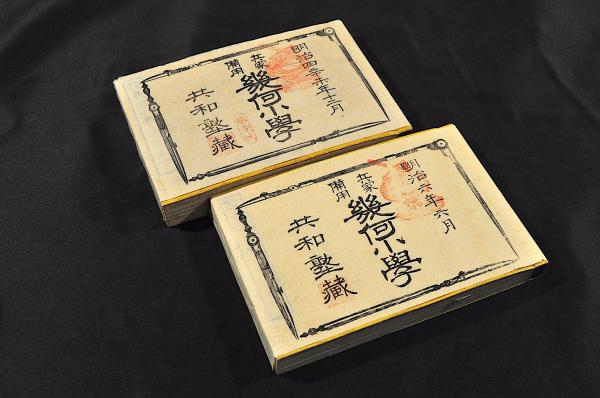 明治四辛未年十二月
兵家
備用
幾何小學
共和塾藏
明治六年六月
兵家
備用
幾何小學
共和塾藏